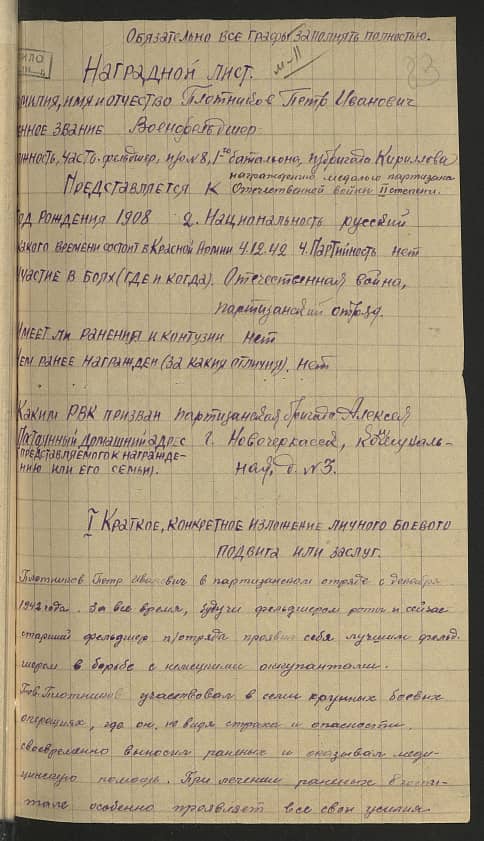 Обязательно все графы заполнять полностью.
м-11
83
Наградной лист.
милия, имя и отчество Плотников Петр Иванович
енное звание Военфельдшер
лжность, часть фельдшер, п/о №8, 1го батальона, п/бригада Кириллова
награждению медалью партизана
Представляется к Отечественной войны II степени.
од рождения 1908 2. Национальность русский
какого времени состоит в Красной Армии 4.12.42 4. Партийность нет
участие в боях (где и когда). Отечественная война,
партизанский отряд.
имеет ли ранения и контузии нет
ем ранее награжден (за какия отличия). нет
Каким РВК призван партизанская бригада Алексея
Постоянный домашний адрес г. Новочеркасск,
представляемого к награжде-
нию или его семьи). ная, д. №3.
I Краткое, конкретное изложение личного боевого
подвига или заслуг.
Плотников Петр Иванович в партизанском отряде с декабря
1942 года. За все время, будучи фельдшером роты и сейчас
старший фельдшер п/отряда проявил себя лучшим фельд-
шером в борьбе с немецкими оккупантами.
Тов. Плотников участвовал в семи крупных боевых
операциях, где он, не видя страха и опасности,
своевременно выносил раненых и оказывал меди-
цинскую помощь. При лечении раненых в госпи-
тале особенно проявляет все свои усилия